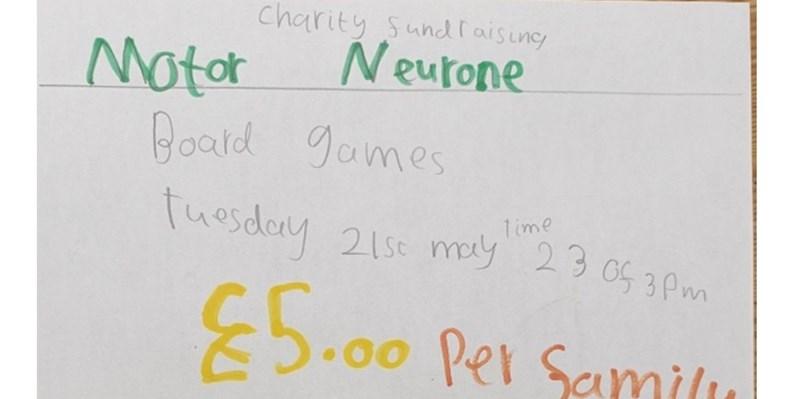 Charity fundraising
Motor Neurone
Board games
tuesday 21st may time 23 of 3pm
£5.00 Per family